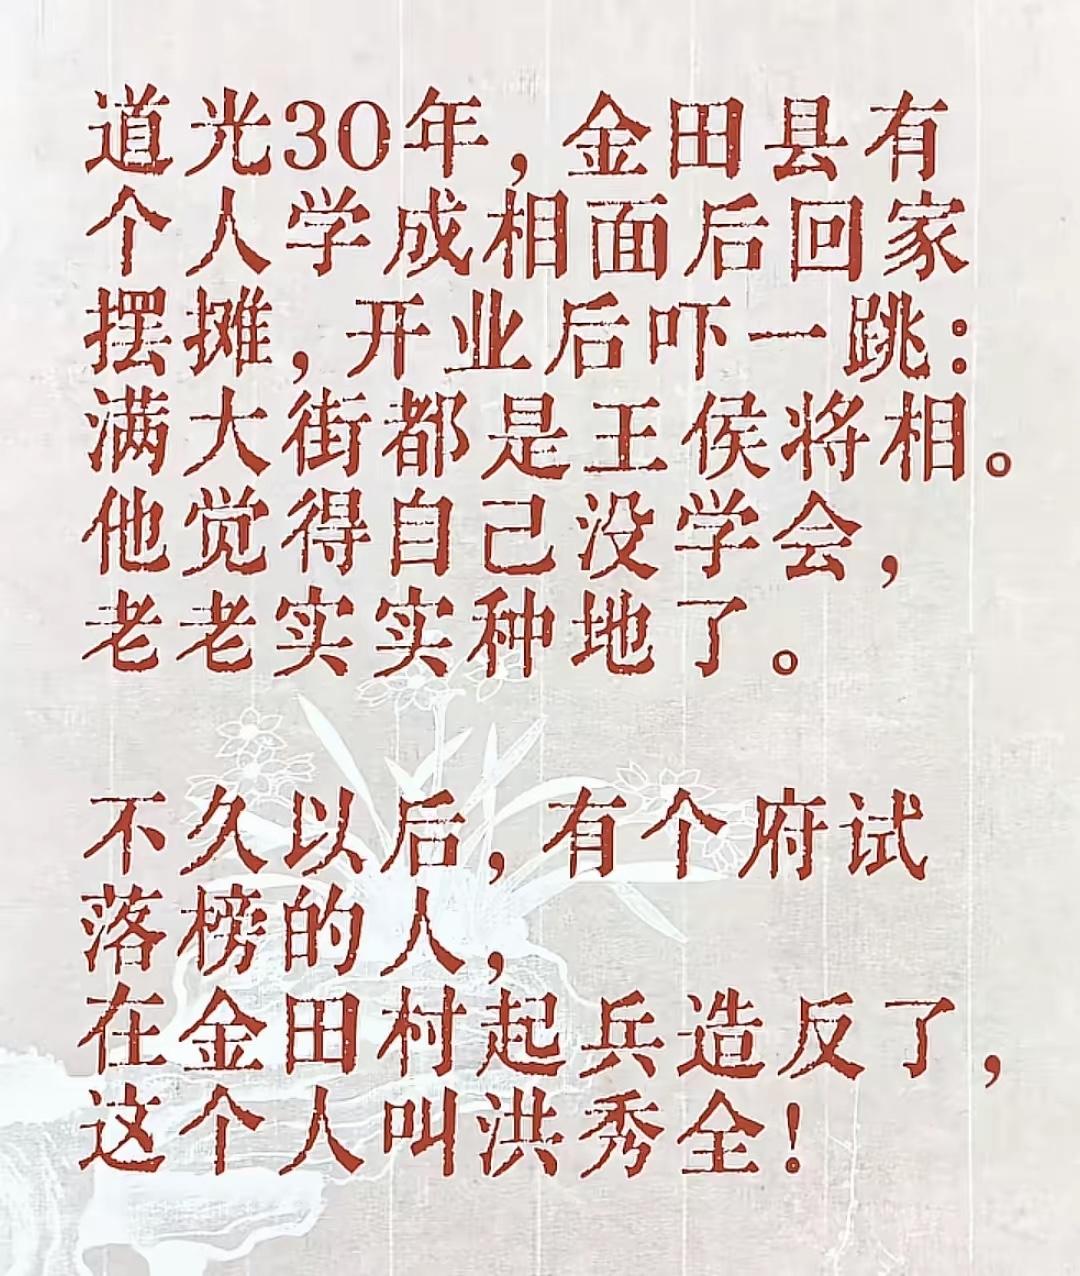 道光30年，金田县有
个人学成相面后回家
摆摊，开业后吓一跳：
满大街都是王侯将相。
他觉得自己没学会，
老老实实种地了。
不久以后，有个府试
落榜的人，
在金田村起兵造反了，
这个人叫洪秀全！